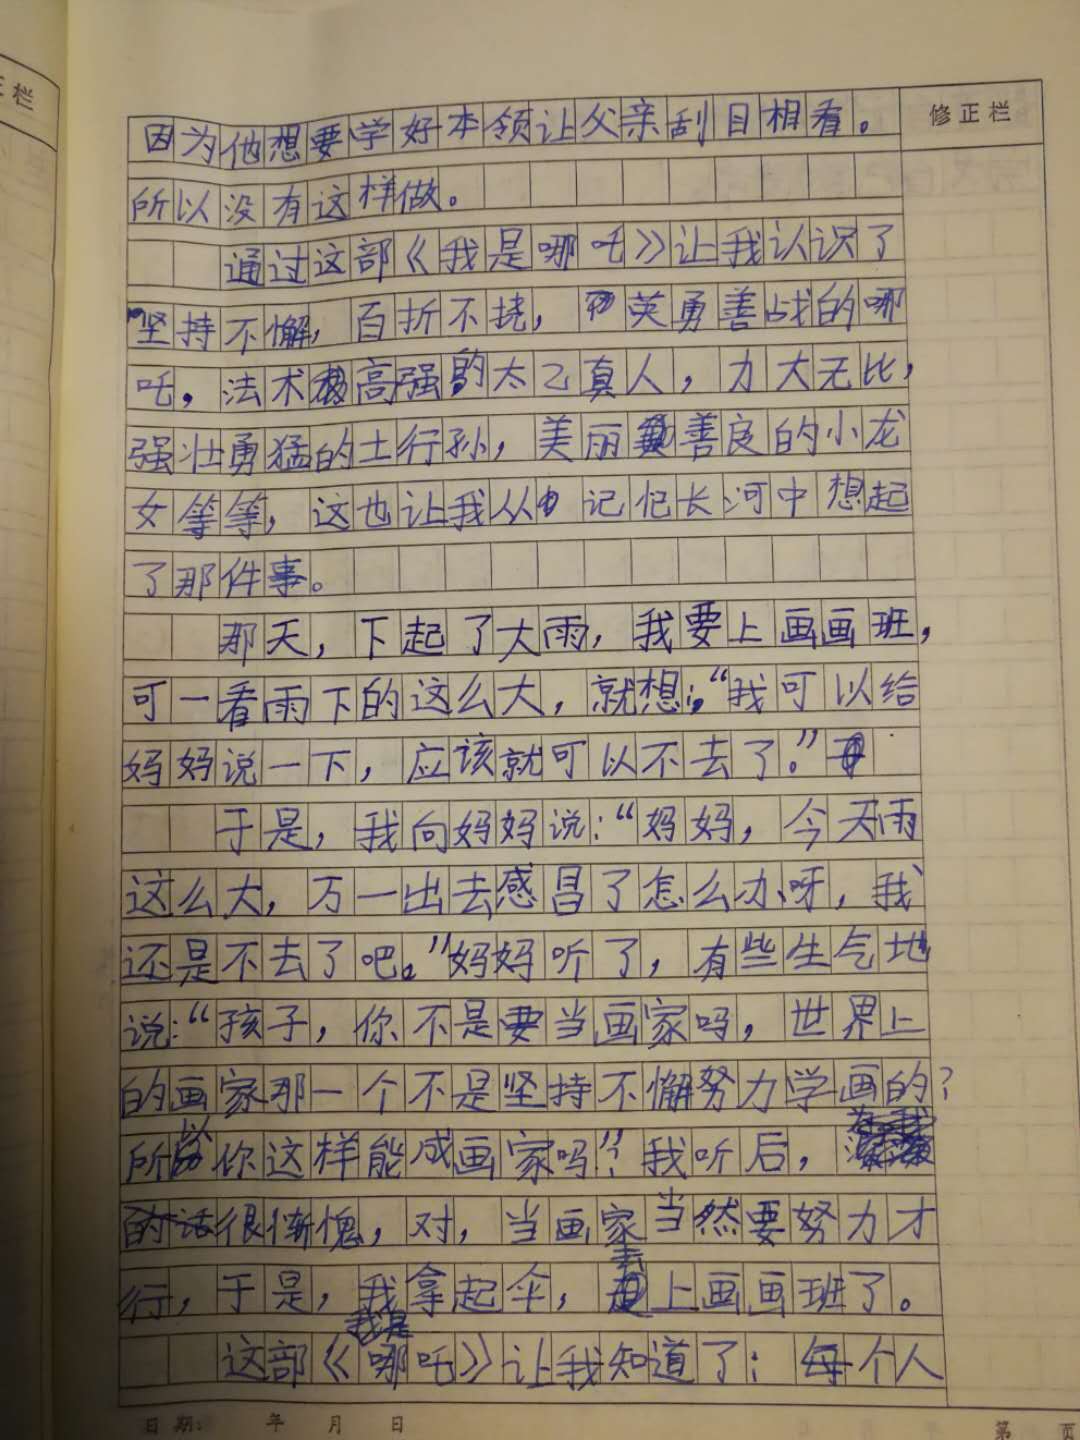 正栏
修正栏
因为他想要学好本领让父亲刮目相看。
所以没有这样做。
通过这部《我是哪吒》让我认识了
坚持不懈，百折不挠，英勇善战的哪
吒，法术高强的太乙真人，力大无比，
强壮勇猛的土行孙，美丽善良的小龙
女等等，这也让我从记忆长河中想起
了那件事。
那天，下起了大雨，我要上画画班，
可一看雨下的这么大，就想：“我可以给
妈妈说一下，应该就可以不去了。”
于是，我向妈妈说：“妈妈，今天雨
这么大，万一出去感冒了怎么办呀，我
还是不去了吧。”妈妈听了，有些生气地
说：“孩子，你不是要当画家吗，世界上
的画家那一个不是坚持不懈努力学画的？
所以你这样能成画家吗？”我听后，
很惭愧，对，当画家当然要努力才
行，于是，我拿起伞，去上画画班了。
这部《我是哪吒》让我知道了：每个人
日期： 年 月 日
第 页